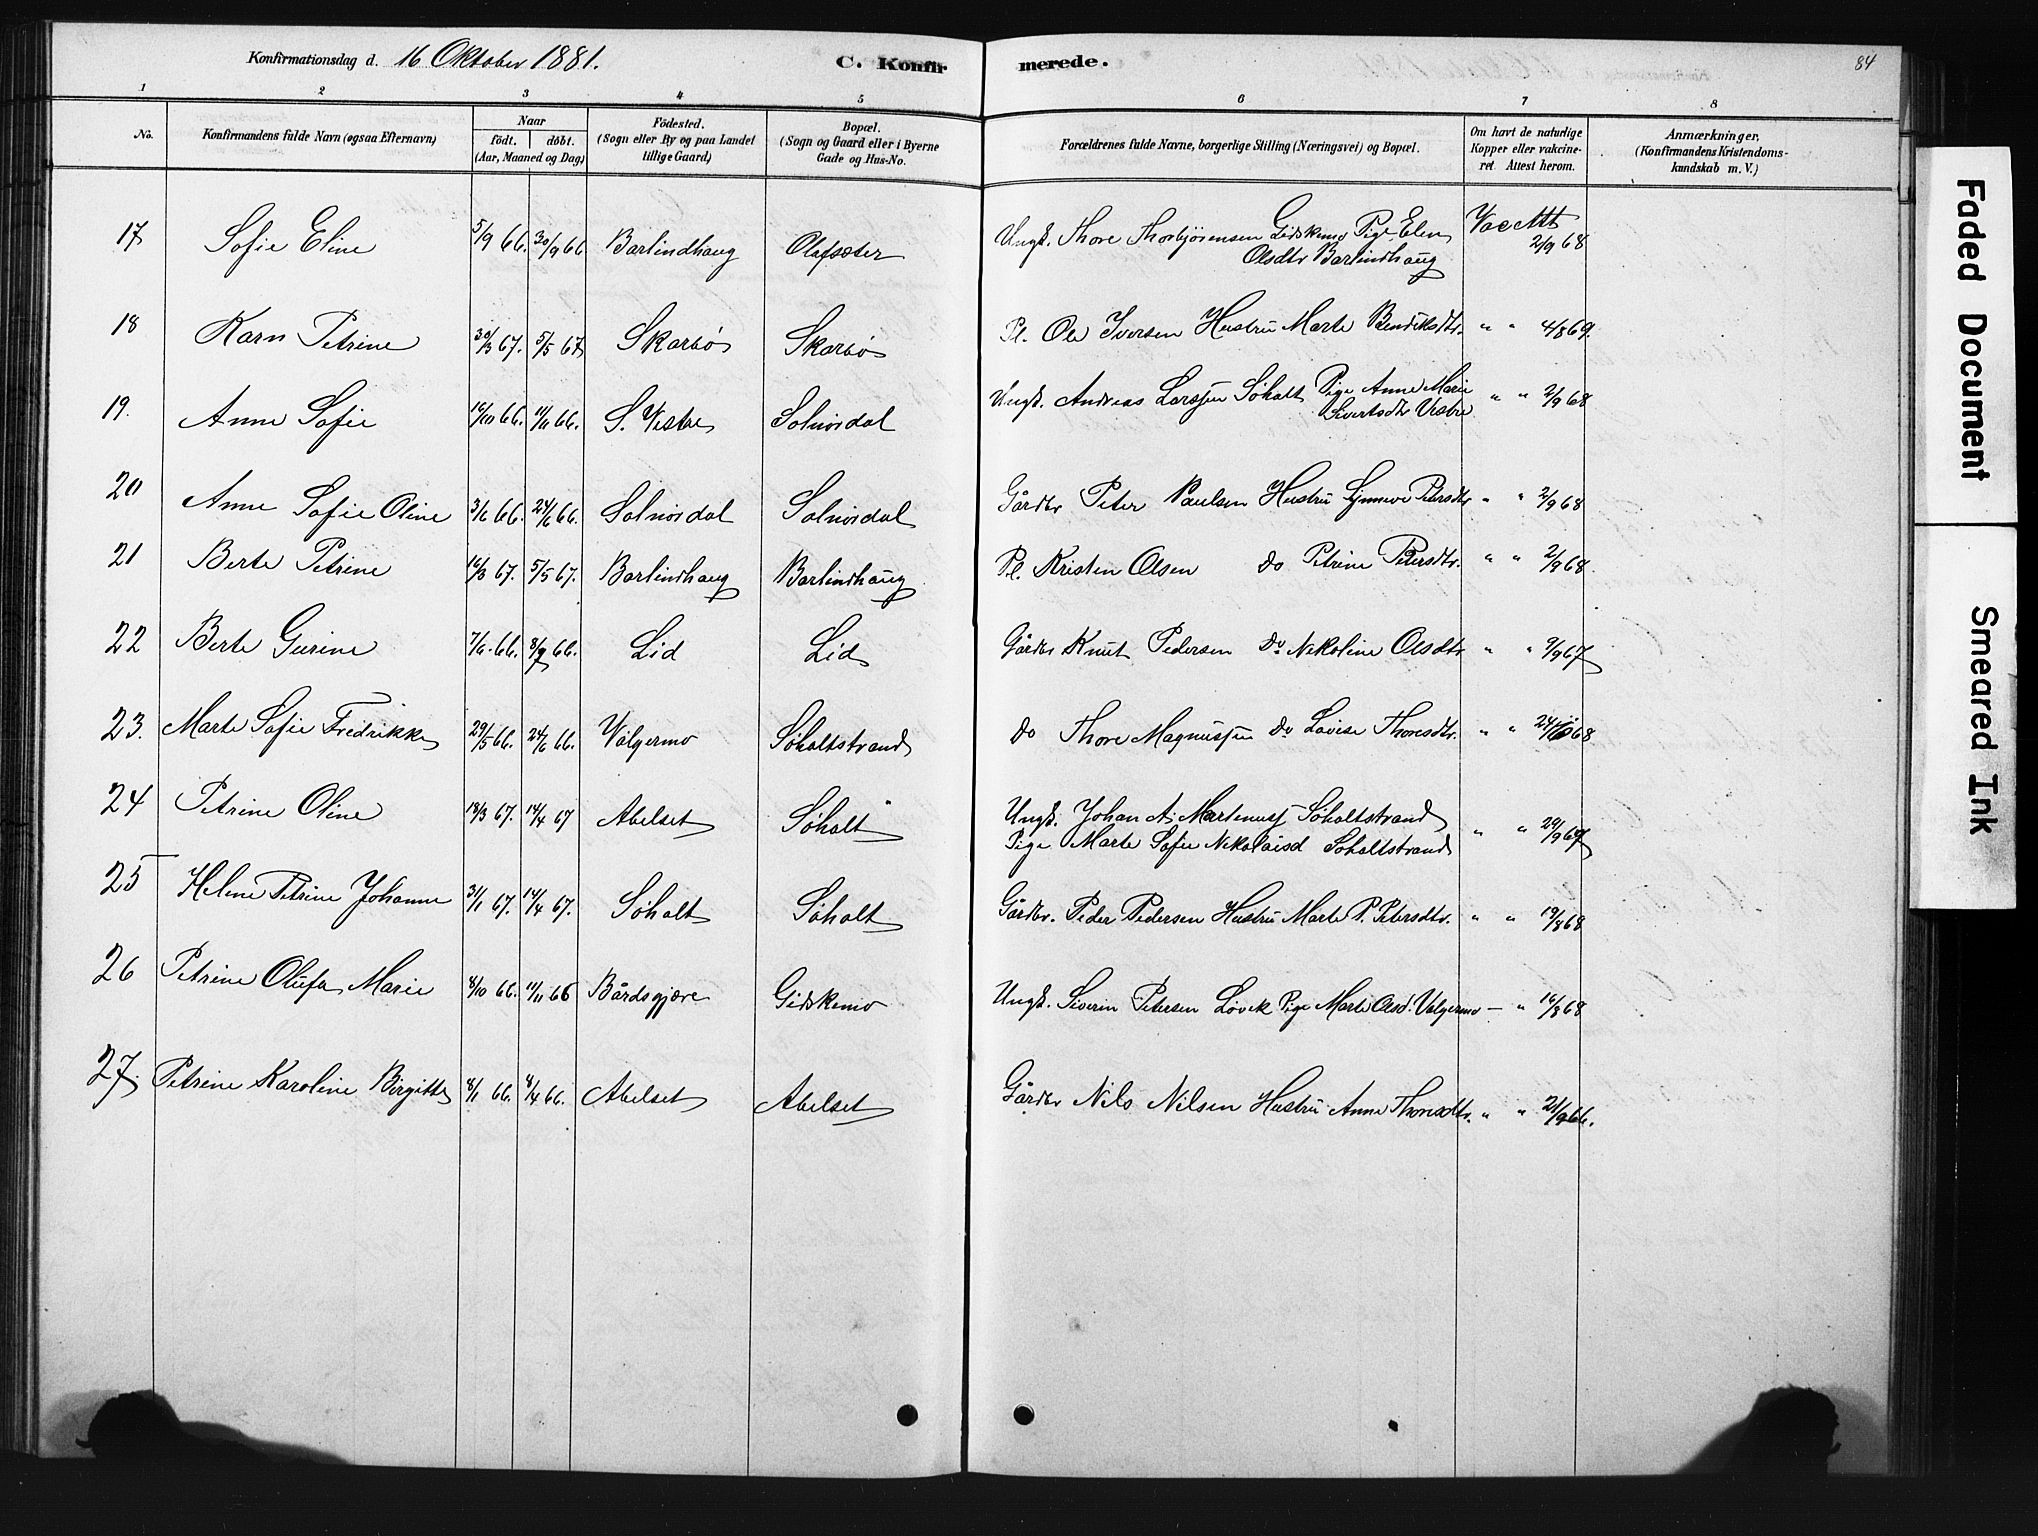 Konfirmationsdag d. 16 Oktober 1881. C. Konfirmerede. 84
1 2 3 4 5 6 7 8
No. Konfirmandens fulde Navn (ogsaa Efternavn) Naar födt. döbt. (Aar, Maaned og Dag) Födested. (Sogn eller By og paa Landet tillige Gaard) Bopæl. (Sogn og Gaard eller i Byerne Gade og Hus-No. Forældrenes fulde Navne, borgerlige Stilling (Næringsvei) og Bopæl. Om havt de naturlige Kopper eller vakcineret. Attest herom. Anmærkninger, (Konfirmandens Kristendomskundskab m. V.)
17 Sofie Eline 5/9 66. 30/9 66 Barlindhaug Olafsæter Ungk. Thore Thorbjörnsen Gidskemo Pige Elen Vac Att
Olsdtr Barlindhaug 2/9 68
18 Karn Petrine 30/3 67. 5/5 67 Skarbø Skarbø Pl. Ole Iversen Hustru Marte Bendiksdtr. " " 4/8 69.
19. Anne Sofie 10/10 66. 11/11 66. S. Vestre Solnördal Ungk. Andreas Larssen Søholt Pige Anne Marie
Sivertsdtr Vestre " " 2/9 68
20 Anne Sofie Oline 3/6 66. 24/6 66. Solnördal Solnördal Gårdbr Peter Paulsen Hustru Synneve Petersdtr " " 2/9 68
21 Berte Petrine 16/3 67. 5/5 67. Barlindhaug Barlindhaug Pl. Kristen Olsen do Petrine Petersdtr. " " 2/9 68.
22 Berte Gurine 7/6 66. 8/7 66. Lid Lid Gårdbr Knut Pedersen Do Nikoline Olsdtr " " 9/9 67
23. Marte Sofie Fredrikke 29/5 66. 24/6 66. Valgermo Søholtstrand do Thore Magnussen Do Lovise Thoresdtr. " " 24/10 68
24 Petrine Oline 18/3 67. 14/4 67 Abelset Søholt Ungk. Johan A. Martinuss Søholtstrand
Pige Marte Sofie Nikolaisd Søholtstrand " " 24/9 67
25 Helene Petrine Johanne 31/1 67. 14/4 67. Søholt Søholt Gårdbr. Peder Pedersen Hustru Marte P. Petersdtr. " " 19/8 68
26 Petrine Olufa Marie 8/10 66. 11/11 66 Bårdsgjære Gidskemo Ungk. Siverin Petersen Løvik Pige Marte Olsd. Valgermo — " 16/8 68
27. Petrine Karoline Birgitte 8/1 66. 8/4 66. Abelset Abelset Gårdbr Nils Nilsen Hustru Anne Thoresdtr. " " 21/9 66.
Faded Document
Smeared Ink